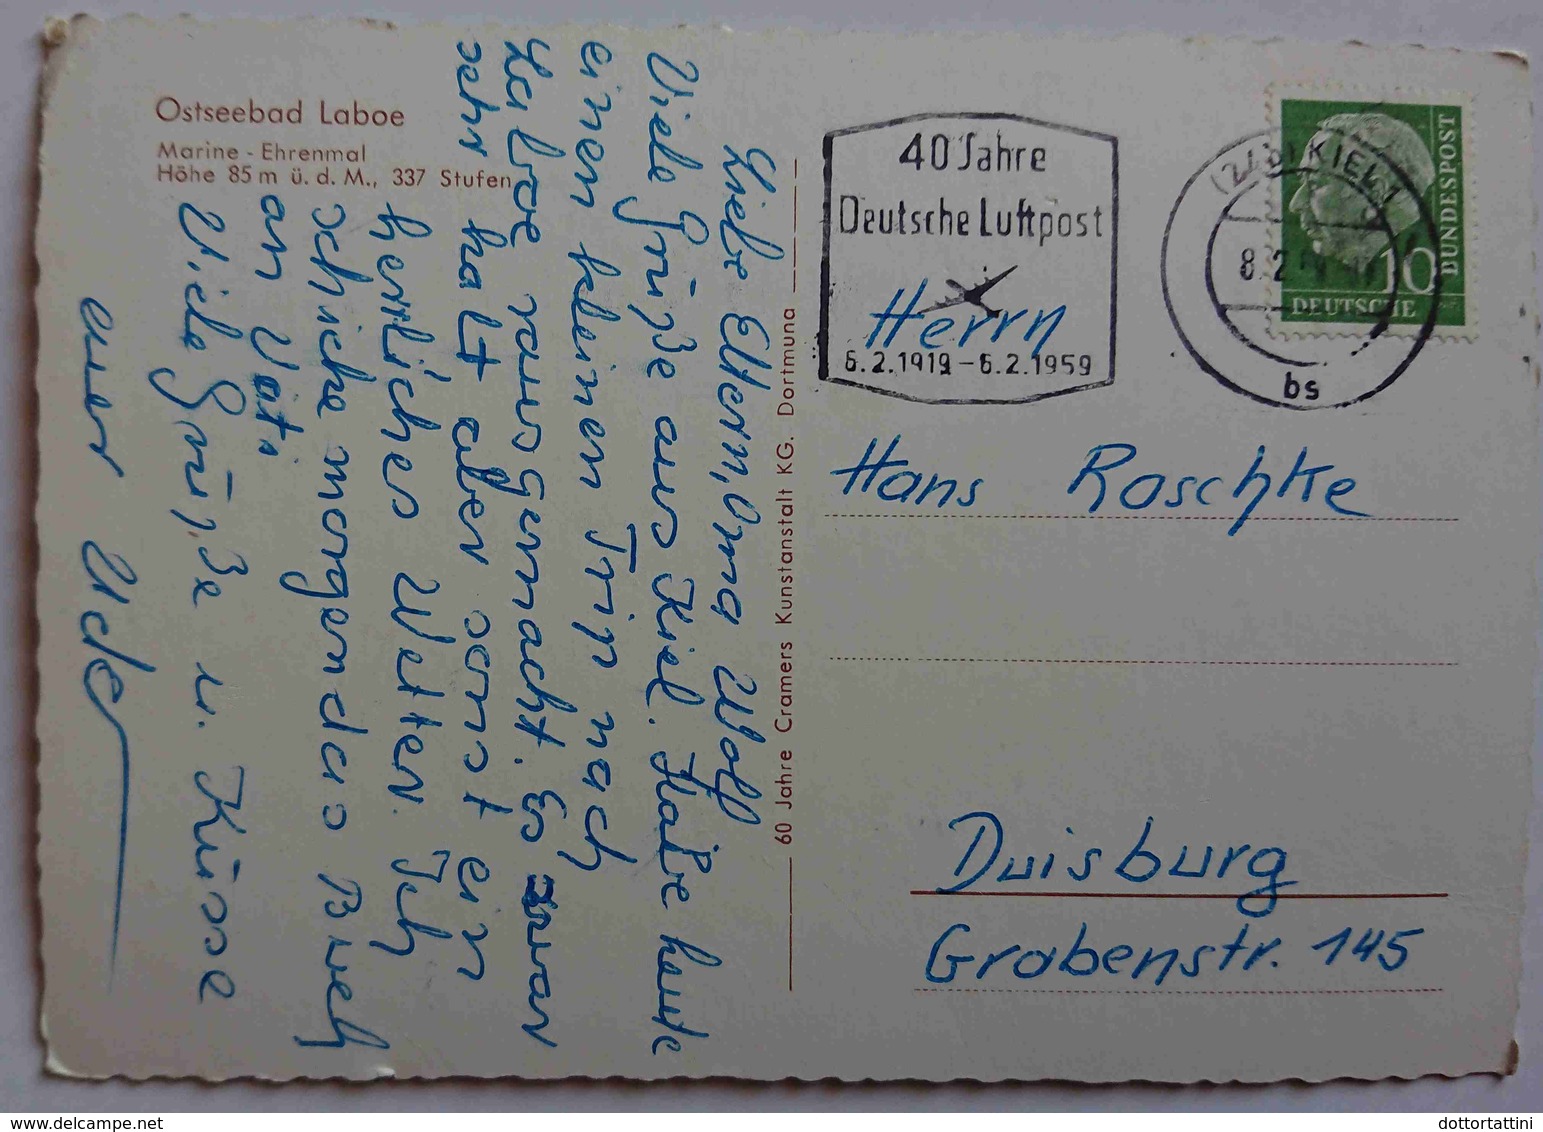 Ostseebad Laboe
Marine - Ehrenmal
Höhe 85 m ü. d. M., 337 Stufen
Liebe Eltern, Oma Wolf
Viele Grüße aus Kiel. Habe heute
einen kleinen Trip nach
Laboe rausgemacht. Es war
sehr kalt aber sonst ein
herrliches Wetter. Ich
schicke morgen das Buch
an Vati.
Viele Grüße u. Küsse
euer Udo
60 Jahre Cramers Kunstanstalt KG. Dortmund
40 Jahre
Deutsche Luftpost
6.2.1919-6.2.1959
KIEL 1
8.2
bs
10
DEUTSCHE
BUNDESPOST
Herrn
Hans Roschke
Duisburg
Grabenstr. 145
delcampe.net
dottortattini